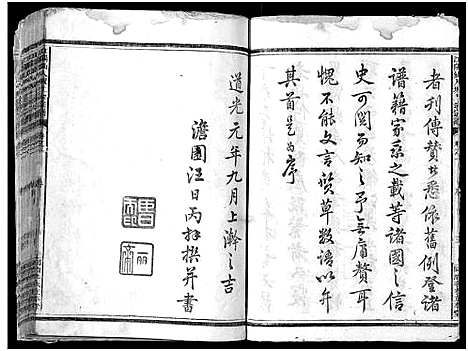 者刊傳贊悉依舊例登諸
譜籍家乘之載等諸國之信
史可閱而知之予無庸贅耳
愧不能文言質草數語以弁
其首是為序
道光元年九月上澣之吉
澹園汪日丙拜撰并書